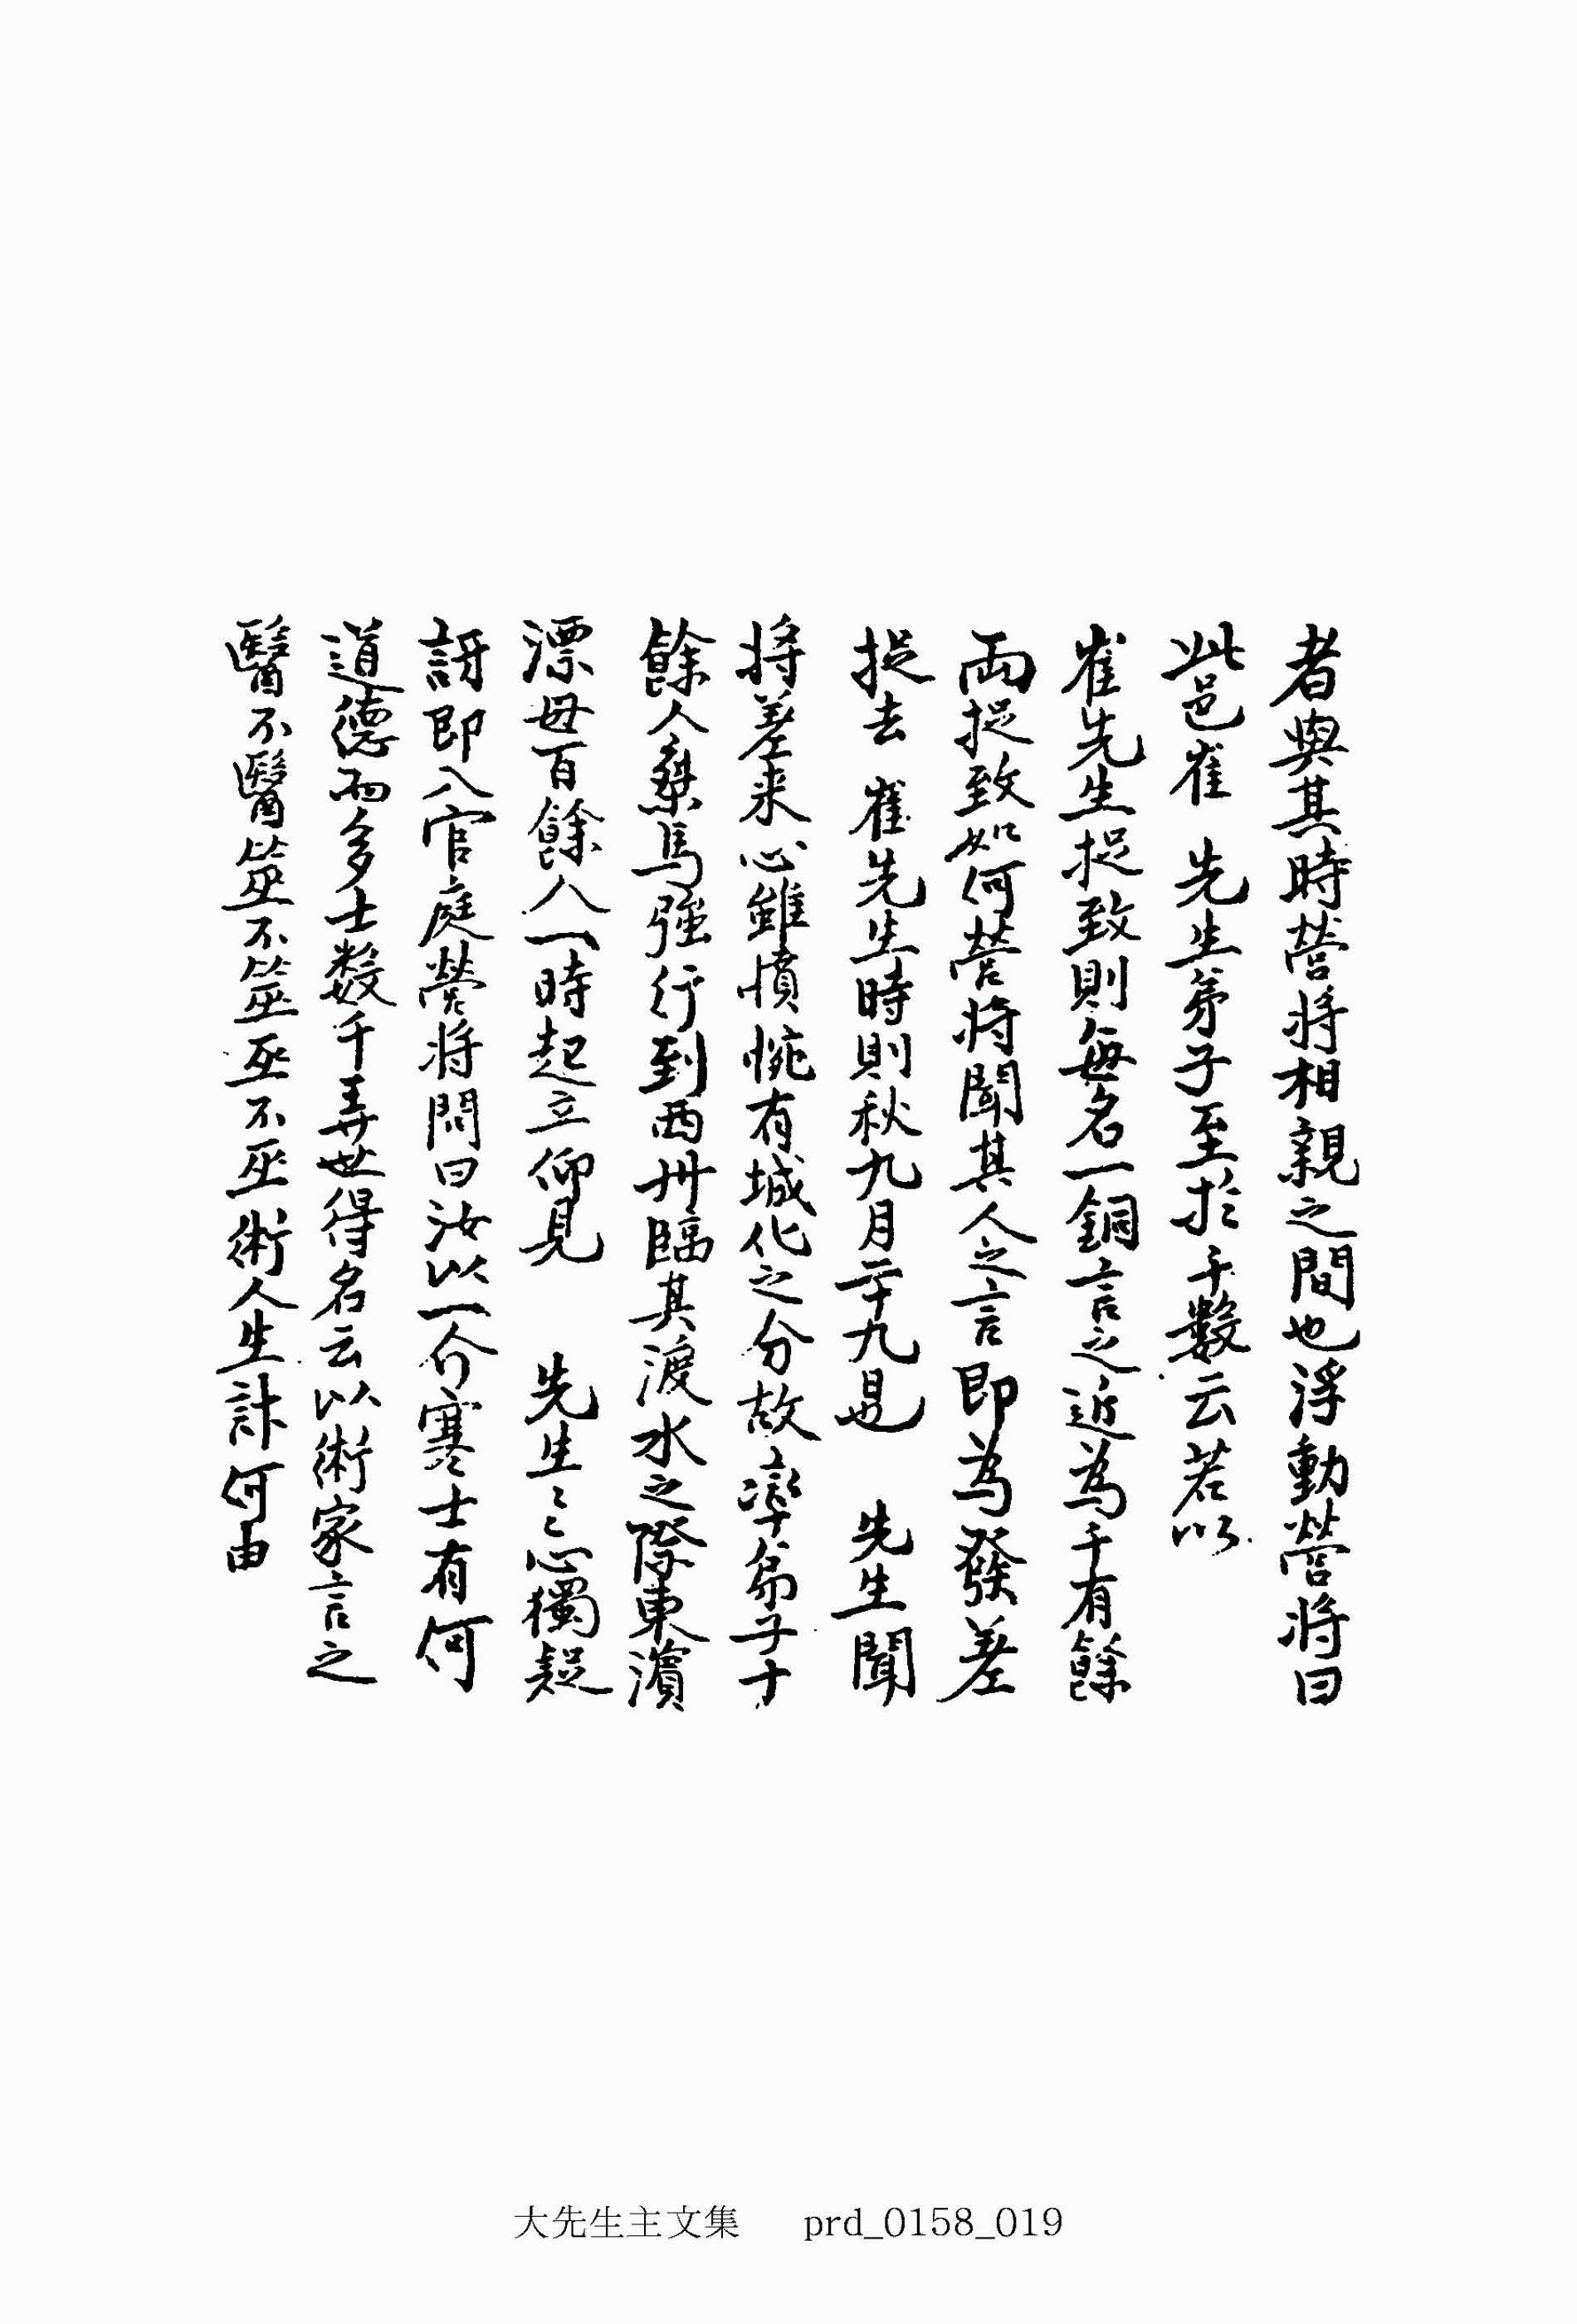 者與其時營將相親之間也浮動營將曰
此邑崔 先生弟子至於千數云若以
崔先生捉致則每名一銅言之近為千有餘
兩捉致如何營將聞其人之言即為發差
捉去 崔先生時則秋九月二十九日也 先生聞
將差来心雖憤惋有城化之分故率弟子十
餘人乘馬强行到西州臨其渡水之際東濱
漂母百餘人一時起立仰見 先生〻心獨疑
訝即入官庭營將問曰汝以一介寒士有何
道德而多士数千弄世得名云以術家言之
醫不醫筮不筮巫不巫術人生計何由
大先生主文集 prd_0158_019